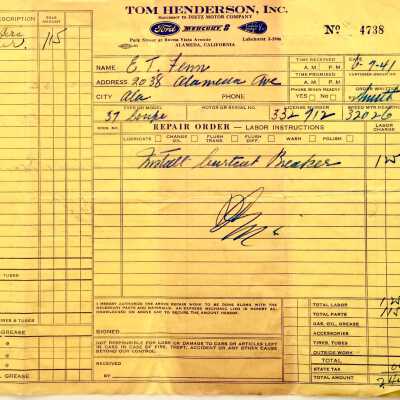 TOM HENDERSON, INC.
SUCCESSOR TO DIETZ MOTOR COMPANY
Ford MERCURY 8
Park Street at Buena Vista Avenue
ALAMEDA, CALIFORNIA
No 4738
DESCRIPTION SALE AMOUNT
115
NAME E T. Fenn
ADDRESS 2038 Alameda Ave
CITY Ala PHONE
TIME RECEIVED A.M. P.M.
TIME PROMISED A.M. P.M.
PHONE WHEN READY YES NO
6-9-41
ORDER WRITTEN
Smith
TYPE OR MODEL MOTOR OR SERIAL NO. LICENSE NUMBER SPEED MTR READING
37 Coupe 33Z 912 32026
REPAIR ORDER — LABOR INSTRUCTIONS
LUBRICATE CHANGE OIL FLUSH TRANS. FLUSH DIFF. WASH POLISH
Install Cutout Breaker
TUBES
TIRES & TUBES
GREASE
OIL GREASE
I HEREBY AUTHORIZE THE ABOVE REPAIR WORK TO BE DONE ALONG WITH THE
NECESSARY PARTS AND MATERIALS. AN EXPRESS MECHANICS LIEN IS HEREBY
ACKNOWLEDGED ON ABOVE CAR TO SECURE THE AMOUNT HEREON.
SIGNED
NOT RESPONSIBLE FOR LOSS OR DAMAGE TO CARS OR ARTICLES LEFT
IN CARS IN CASE OF FIRE, THEFT, ACCIDENT OR ANY OTHER CAUSE
BEYOND OUR CONTROL.
RECEIVED
BY
TOTAL LABOR
TOTAL PARTS 115
GAS, OIL, GREASE
ACCESSORIES
TIRES, TUBES
OUTSIDE WORK
STATE TAX
TOTAL AMOUNT